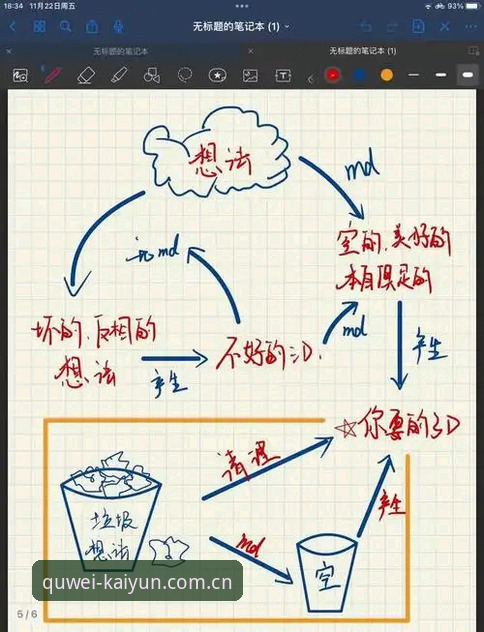 16:34 11月22日周五
93%
无标题的笔记本 (1)
无标题的笔记本
无标题的笔记本 (1)
想法
md
空的、美好的
本自具足的
md
坏的、反相的
想法
产生
不好的3D、
md
产生
☆你要的3D
清理
垃圾
想法
md
产生
空
quwei-kaiyun.com.cn
5 / 6